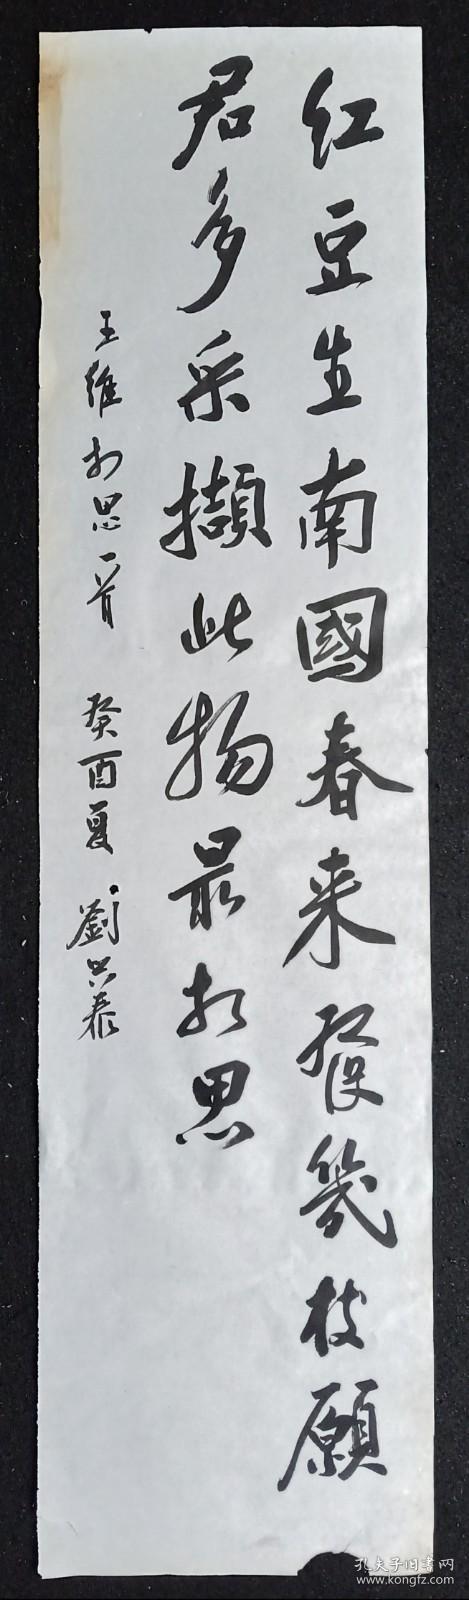 红豆生南國春来發幾枝願
君多采擷此物最相思
王維相思一首 癸酉夏 劉公泰
孔夫子旧书网
www.kongfz.com